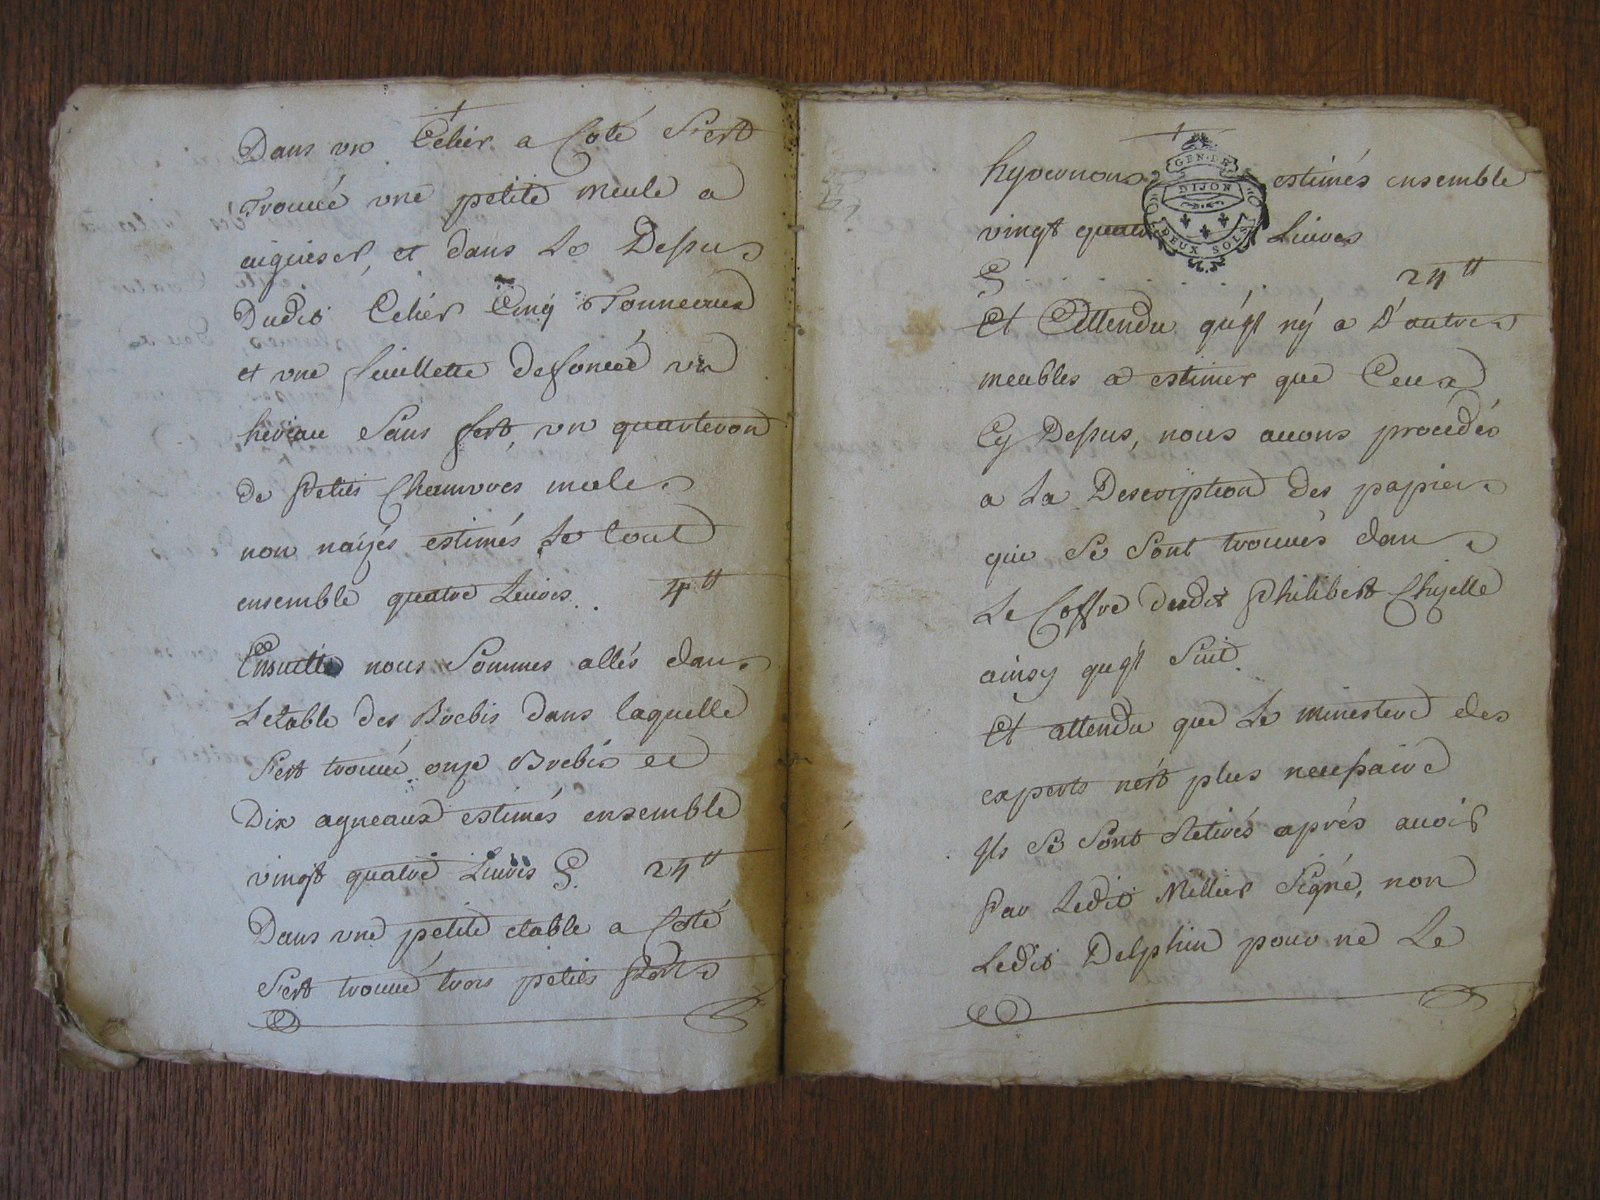 Dans un Celier a Coté s'est
Trouvé une petite meule a
aiguiser, et dans Le Dessus
Dudit Celier Cinq Tonneaux
et une feuillette defoncée un
sans fert, un quarteron
de petits Chamvres mâle
non naizés estimés Le tout
ensemble quatre Livres. 4tt
Ensuitte nous Sommes allés dans
Letable des Brebis dans laquelle
s'est trouvé onze Brebis et
Dix agneaux estimés ensemble
vingt quatre Livres 24tt
Dans une petite etable a Coté
s'est trouvé trois petits Porcs
hyvernons estimés ensemble
GEN. DE
DIJON
DEUX SOLS
vingt quatre Livres
24tt
Et Attendu qu'il ny a D'autres
meubles a estimer que Ceux
Cy Dessus, nous avons procedés
a La Description des papiers
qui se sont trouvés dans
Le Coffre dudit Philibert Chizelle
ainsy qu'il suit.
Et attendu que Le ministere des
experts n'est plus necessaire
Ils se sont Retirés aprés avoir
Par Ledit Millier Signé, non
Ledit Delphin pour ne Le